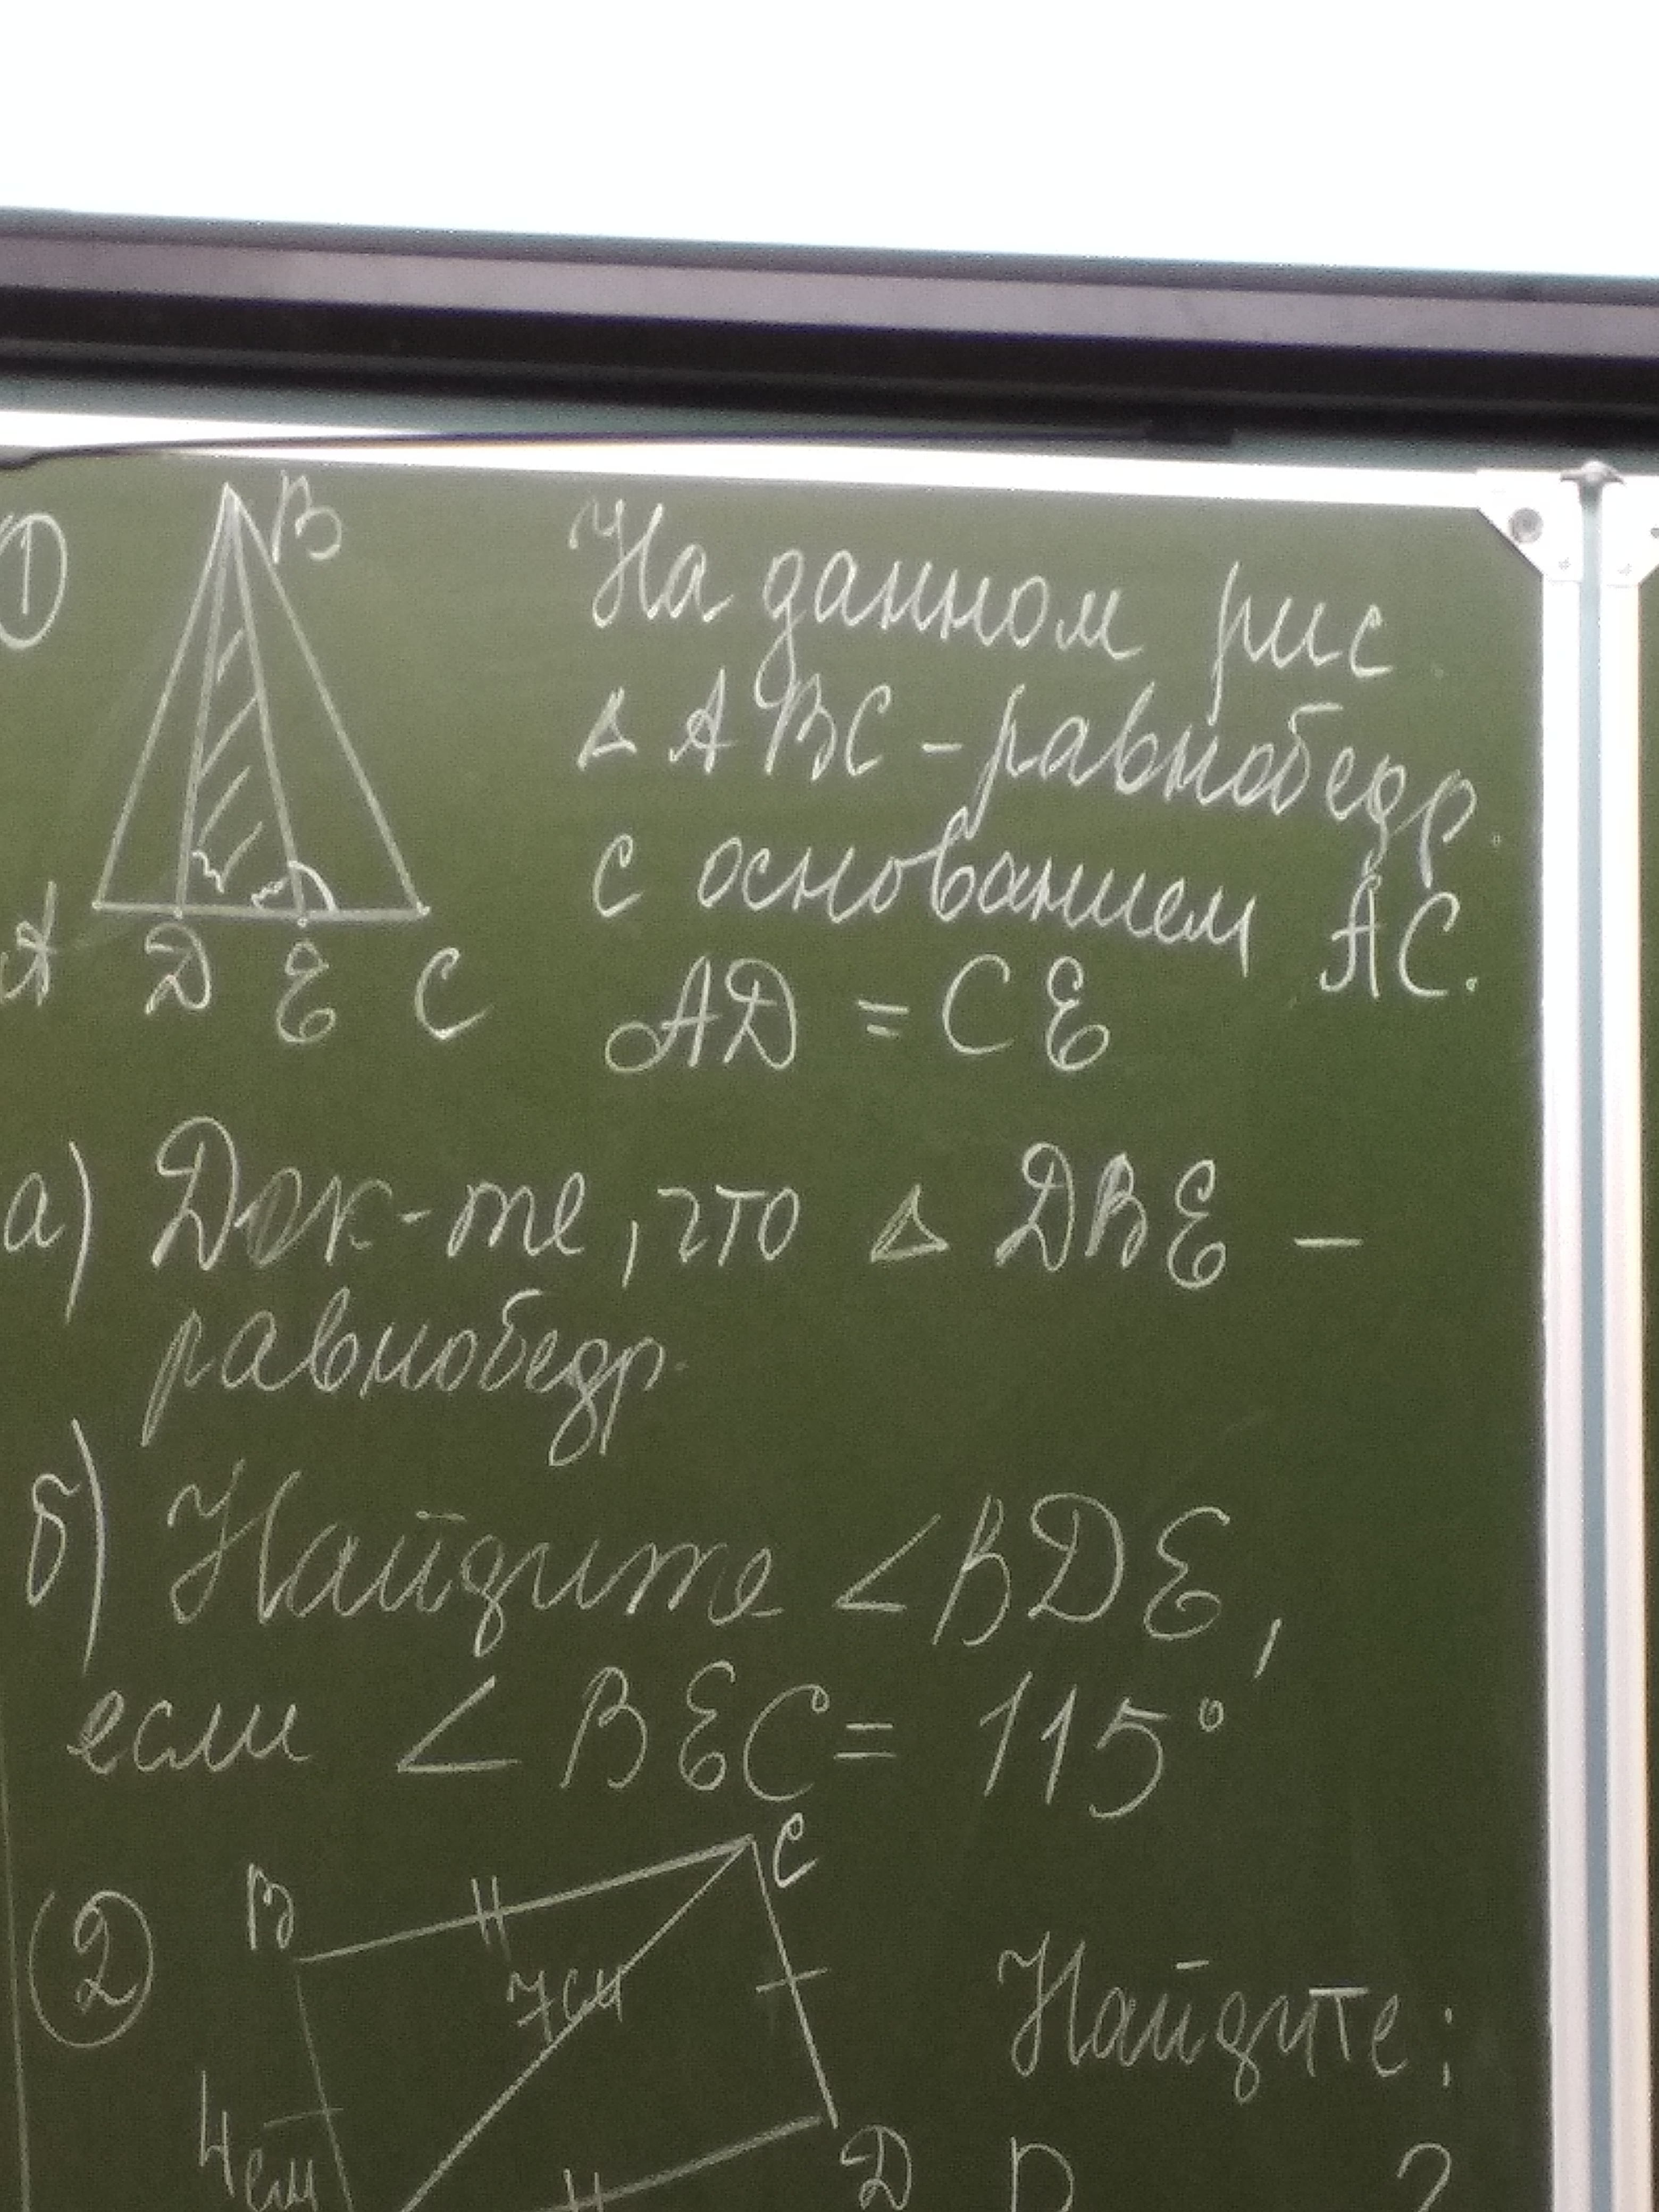 1
B
A D E C
На данном рис
△ ABC - равнобедр.
с основанием AC.
AD = CE
а) Док-те, что △ DBE -
равнобедр.
б) Найдите ∠BDE,
если ∠BEC = 115°
2
B
C
7см
4см
D
Найдите:
P ?